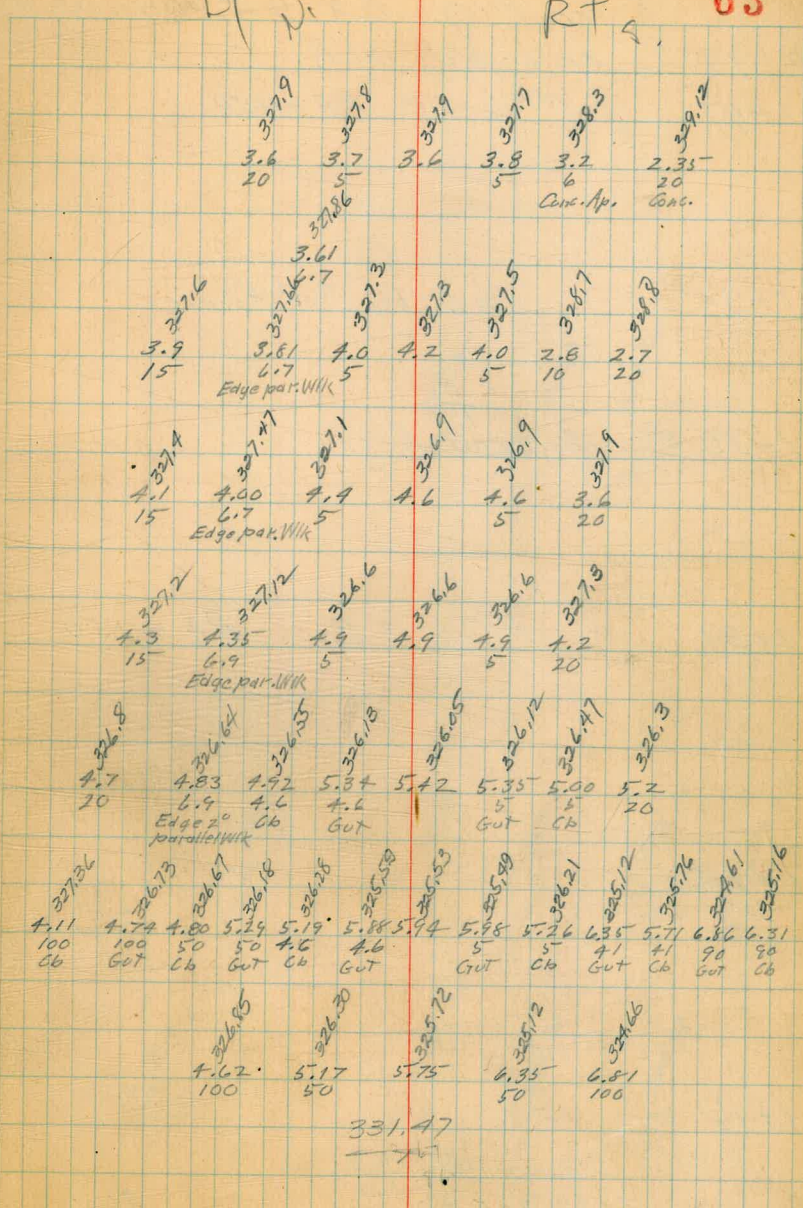 Lf N. Rt S. 63
327.9 327.8 327.9 327.7 328.3 329.12
3.6 3.7 3.6 3.8 3.2 2.35
20 5 5 6 20
Conc. Ap. Conc.
327.86
3.61
6.7
327.6 327.66 327.3 327.3 327.5 328.7 328.8
3.9 3.81 4.0 4.2 4.0 2.8 2.7
15 6.7 5 5 10 20
Edge par. Wlk
327.4 327.47 327.1 326.9 326.9 327.9
4.1 4.00 4.4 4.6 4.6 3.6
15 6.7 5 5 20
Edge par. Wlk
327.2 327.12 326.6 326.6 326.6 327.3
4.3 4.35 4.9 4.9 4.9 4.2
15 6.9 5 5 20
Edge par. Wlk
326.8 326.64 326.55 326.13 326.05 326.12 326.47 326.3
4.7 4.83 4.92 5.34 5.42 5.35 5.00 5.2
20 6.9 4.6 4.6 5 5 20
Edge 2° Cb Gut Gut Cb
parallel Wlk
327.36 326.73 326.67 326.18 326.28 325.59 325.53 325.49 326.21 325.12 325.76 324.61 325.16
4.11 4.74 4.80 5.29 5.19 5.88 5.94 5.98 5.26 6.35 5.71 6.86 6.31
100 100 50 50 4.6 4.6 5 5 41 41 90 90
Cb Gut Cb Gut Cb Gut Gut Cb Gut Cb Gut Cb
326.85 326.30 325.72 325.12 324.66
4.62 5.17 5.75 6.35 6.81
100 50 50 100
331.47